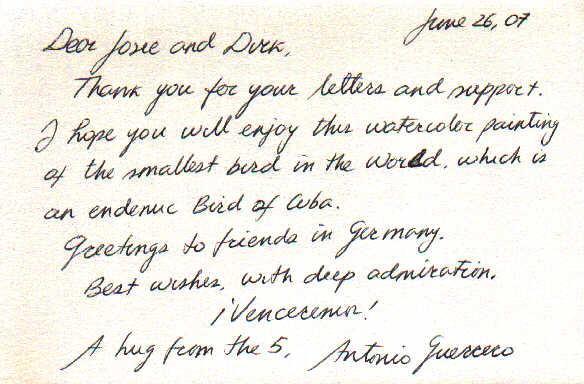 June 26, 07
Dear Josie and Dirk,
Thank you for your letters and support.
I hope you will enjoy this watercolor painting
of the smallest bird in the world, which is
an endemic Bird of Cuba.
Greetings to friends in Germany.
Best wishes, with deep admiration.
¡Venceremos!
A hug from the 5, Antonio Guerrero